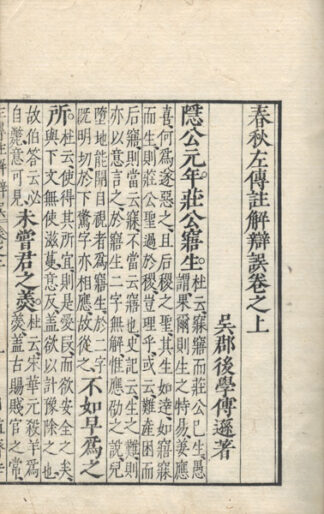 春秋左傳註解辯誤卷之上
吳郡後學傅遜著
隱公元年莊公寤生
杜云寐寤而莊公已生愚
謂果爾則生之特易姜應
喜何為遂惡之且后稷之聖其生如達如寤寐
而生則莊公聖過於稷豈理乎或云難產困而
后寤則當云寐不當云寤也史記云生之難則
亦以意言之於寤生二字無解惟應劭之說兒
墮地能開目視者為寤生於二字
既明切於下驚字亦相應故從之
不如早為之
所
杜云使得其所宜則是愛民而欲安全之矣
與下文無使滋蔓意反蓋欲以計豫除之也
故伯答云必
自斃意可見
未嘗君之羹
杜云宋華元殺羊為
羹蓋古賜賤官之常